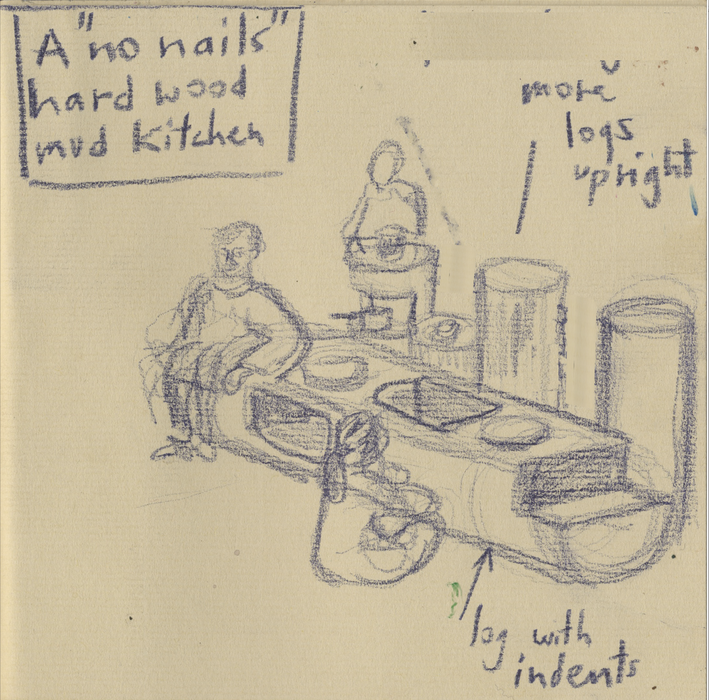 A "no nails"
hard wood
mud kitchen
more
logs
upright
log with
indents